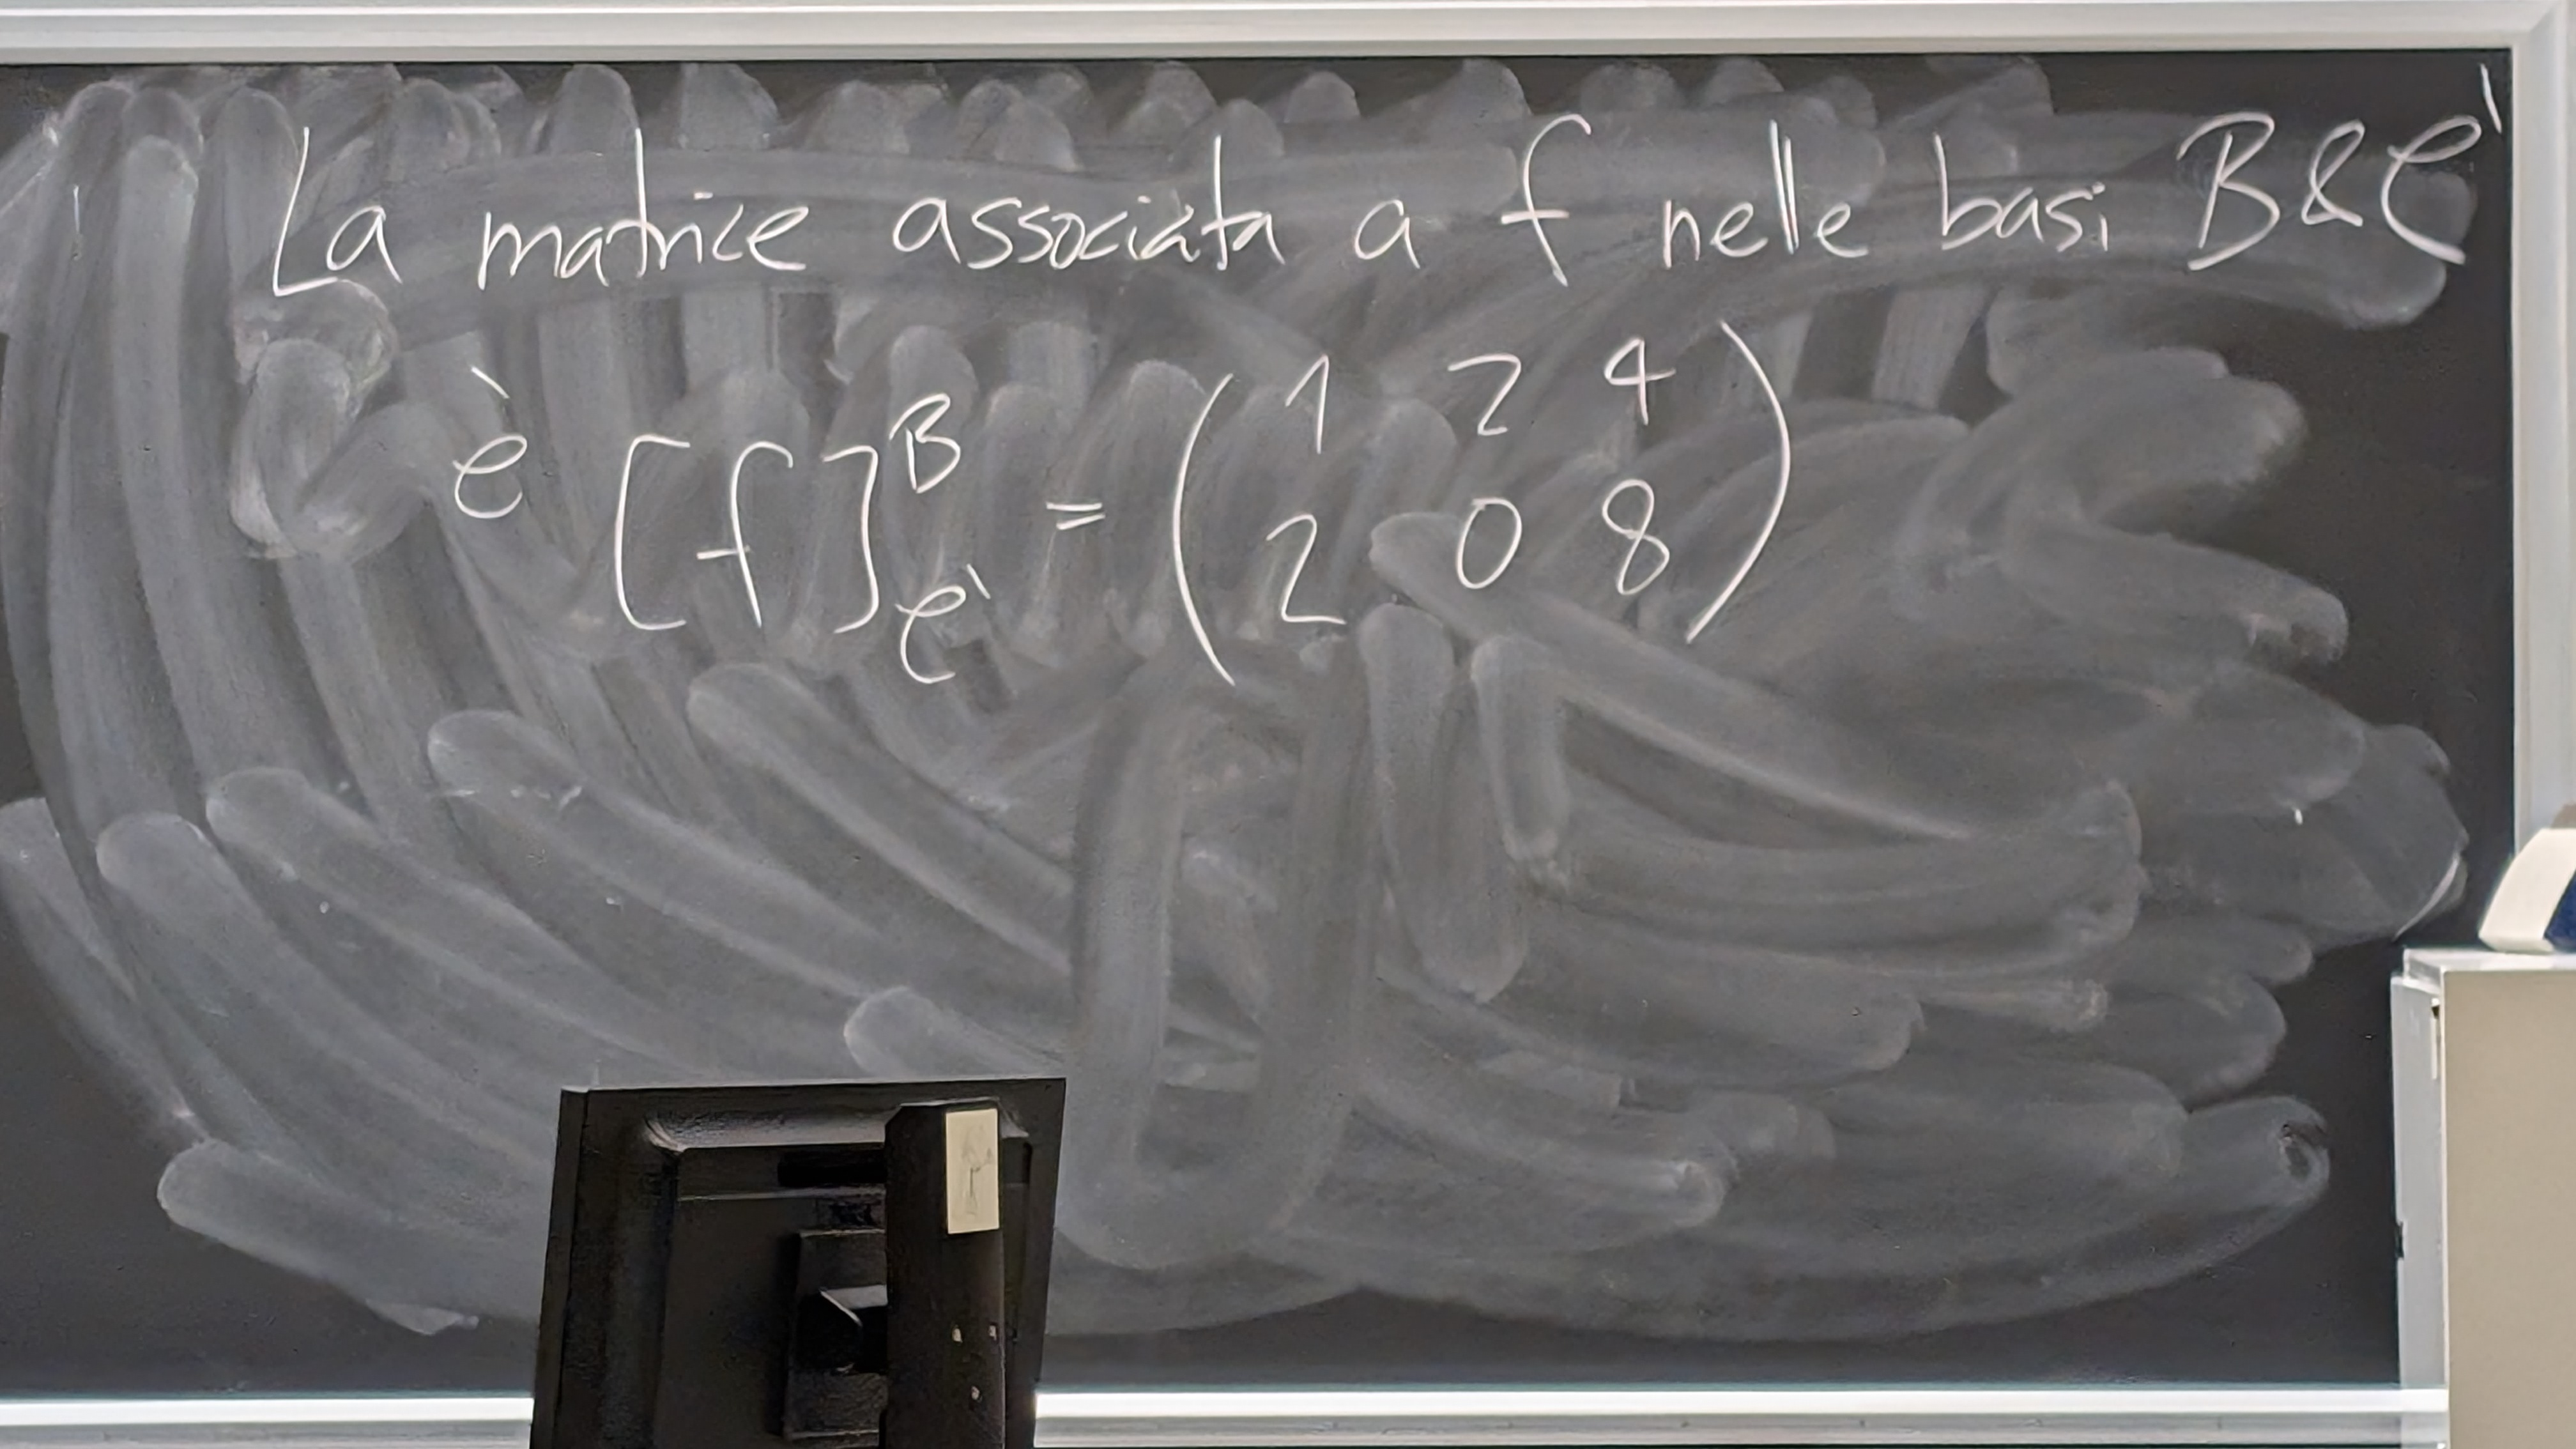 La matrice associata a f nelle basi B & C'
è [f]^B_C' = ( 1 2 4
2 0 8 )